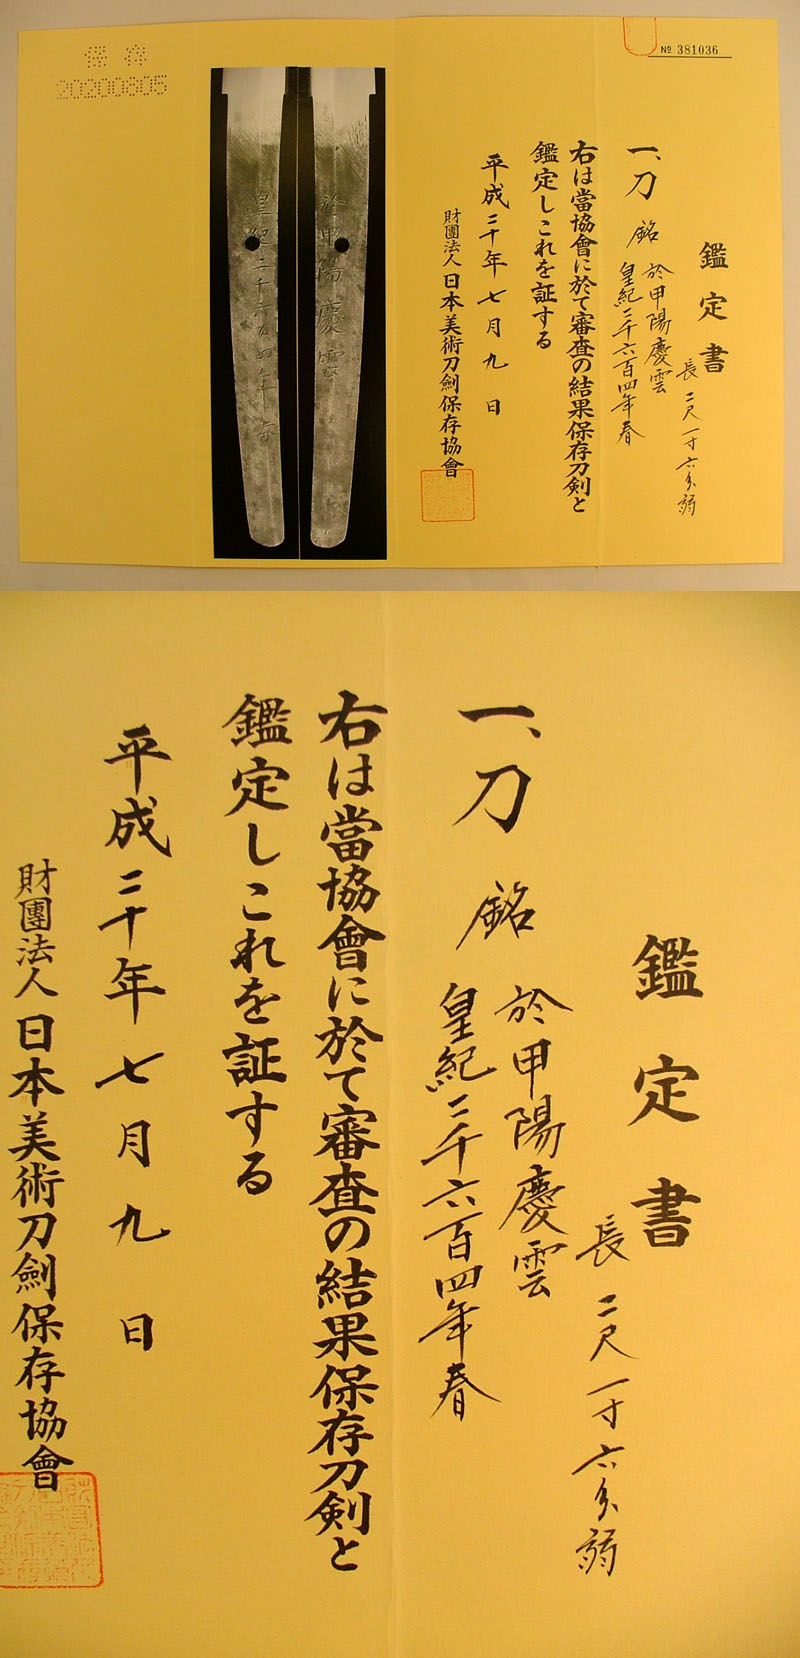 保存
20200805
№ 381036
鑑定書
長 二尺一寸六分弱
一、刀 銘 於甲陽慶雲
皇紀二千六百四年春
右は當協會に於て審査の結果保存刀剣と
鑑定しこれを証する
平成二十年七月九日
財團法人 日本美術刀劍保存協會
於甲陽慶雲
皇紀二千六百四年春
鑑定書
長 二尺一寸六分弱
一、刀 銘 於甲陽慶雲
皇紀二千六百四年春
右は當協會に於て審査の結果保存刀剣と
鑑定しこれを証する
平成二十年七月九日
財團法人 日本美術刀劍保存協會